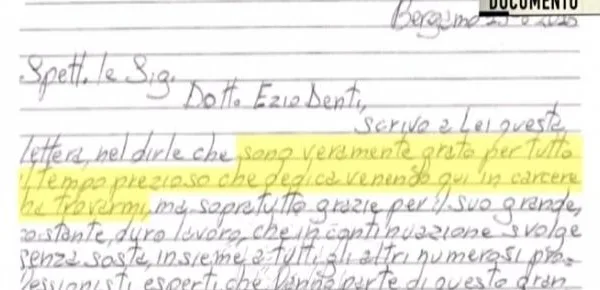 DOCUMENTO
Bergamo
Spett.le Sig.
Dott. Ezio Denti,
scrivo a Lei questa
lettera, nel dirle che sono veramente grato per tutto
il tempo prezioso che dedica venendo qui in carcere
ha trovarmi, ma sopratutto grazie per il suo grande,
costante, duro lavoro, che in continuazione svolge
senza sosta, insieme a tutti gli altri numerosi pro-
fessionisti esperti che fanno parte di questo gran